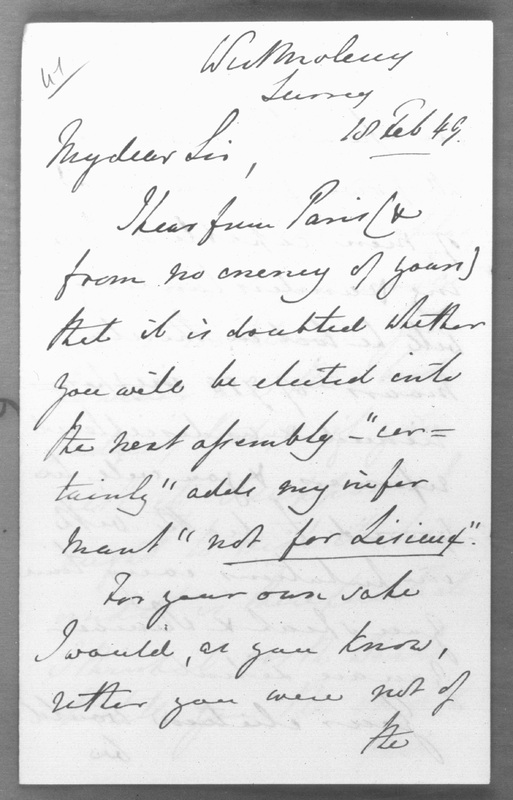 41
West Molesey
Surrey
18 Feb 49.
My dear Sir,
I hear from Paris (&
from no enemy of yours)
that it is doubted whether
you will be elected into
the next assembly - "cer=
tainly" adds my infor
mant "not for Lisieux".
For your own sake
I would, as you know,
rather you were not of
the